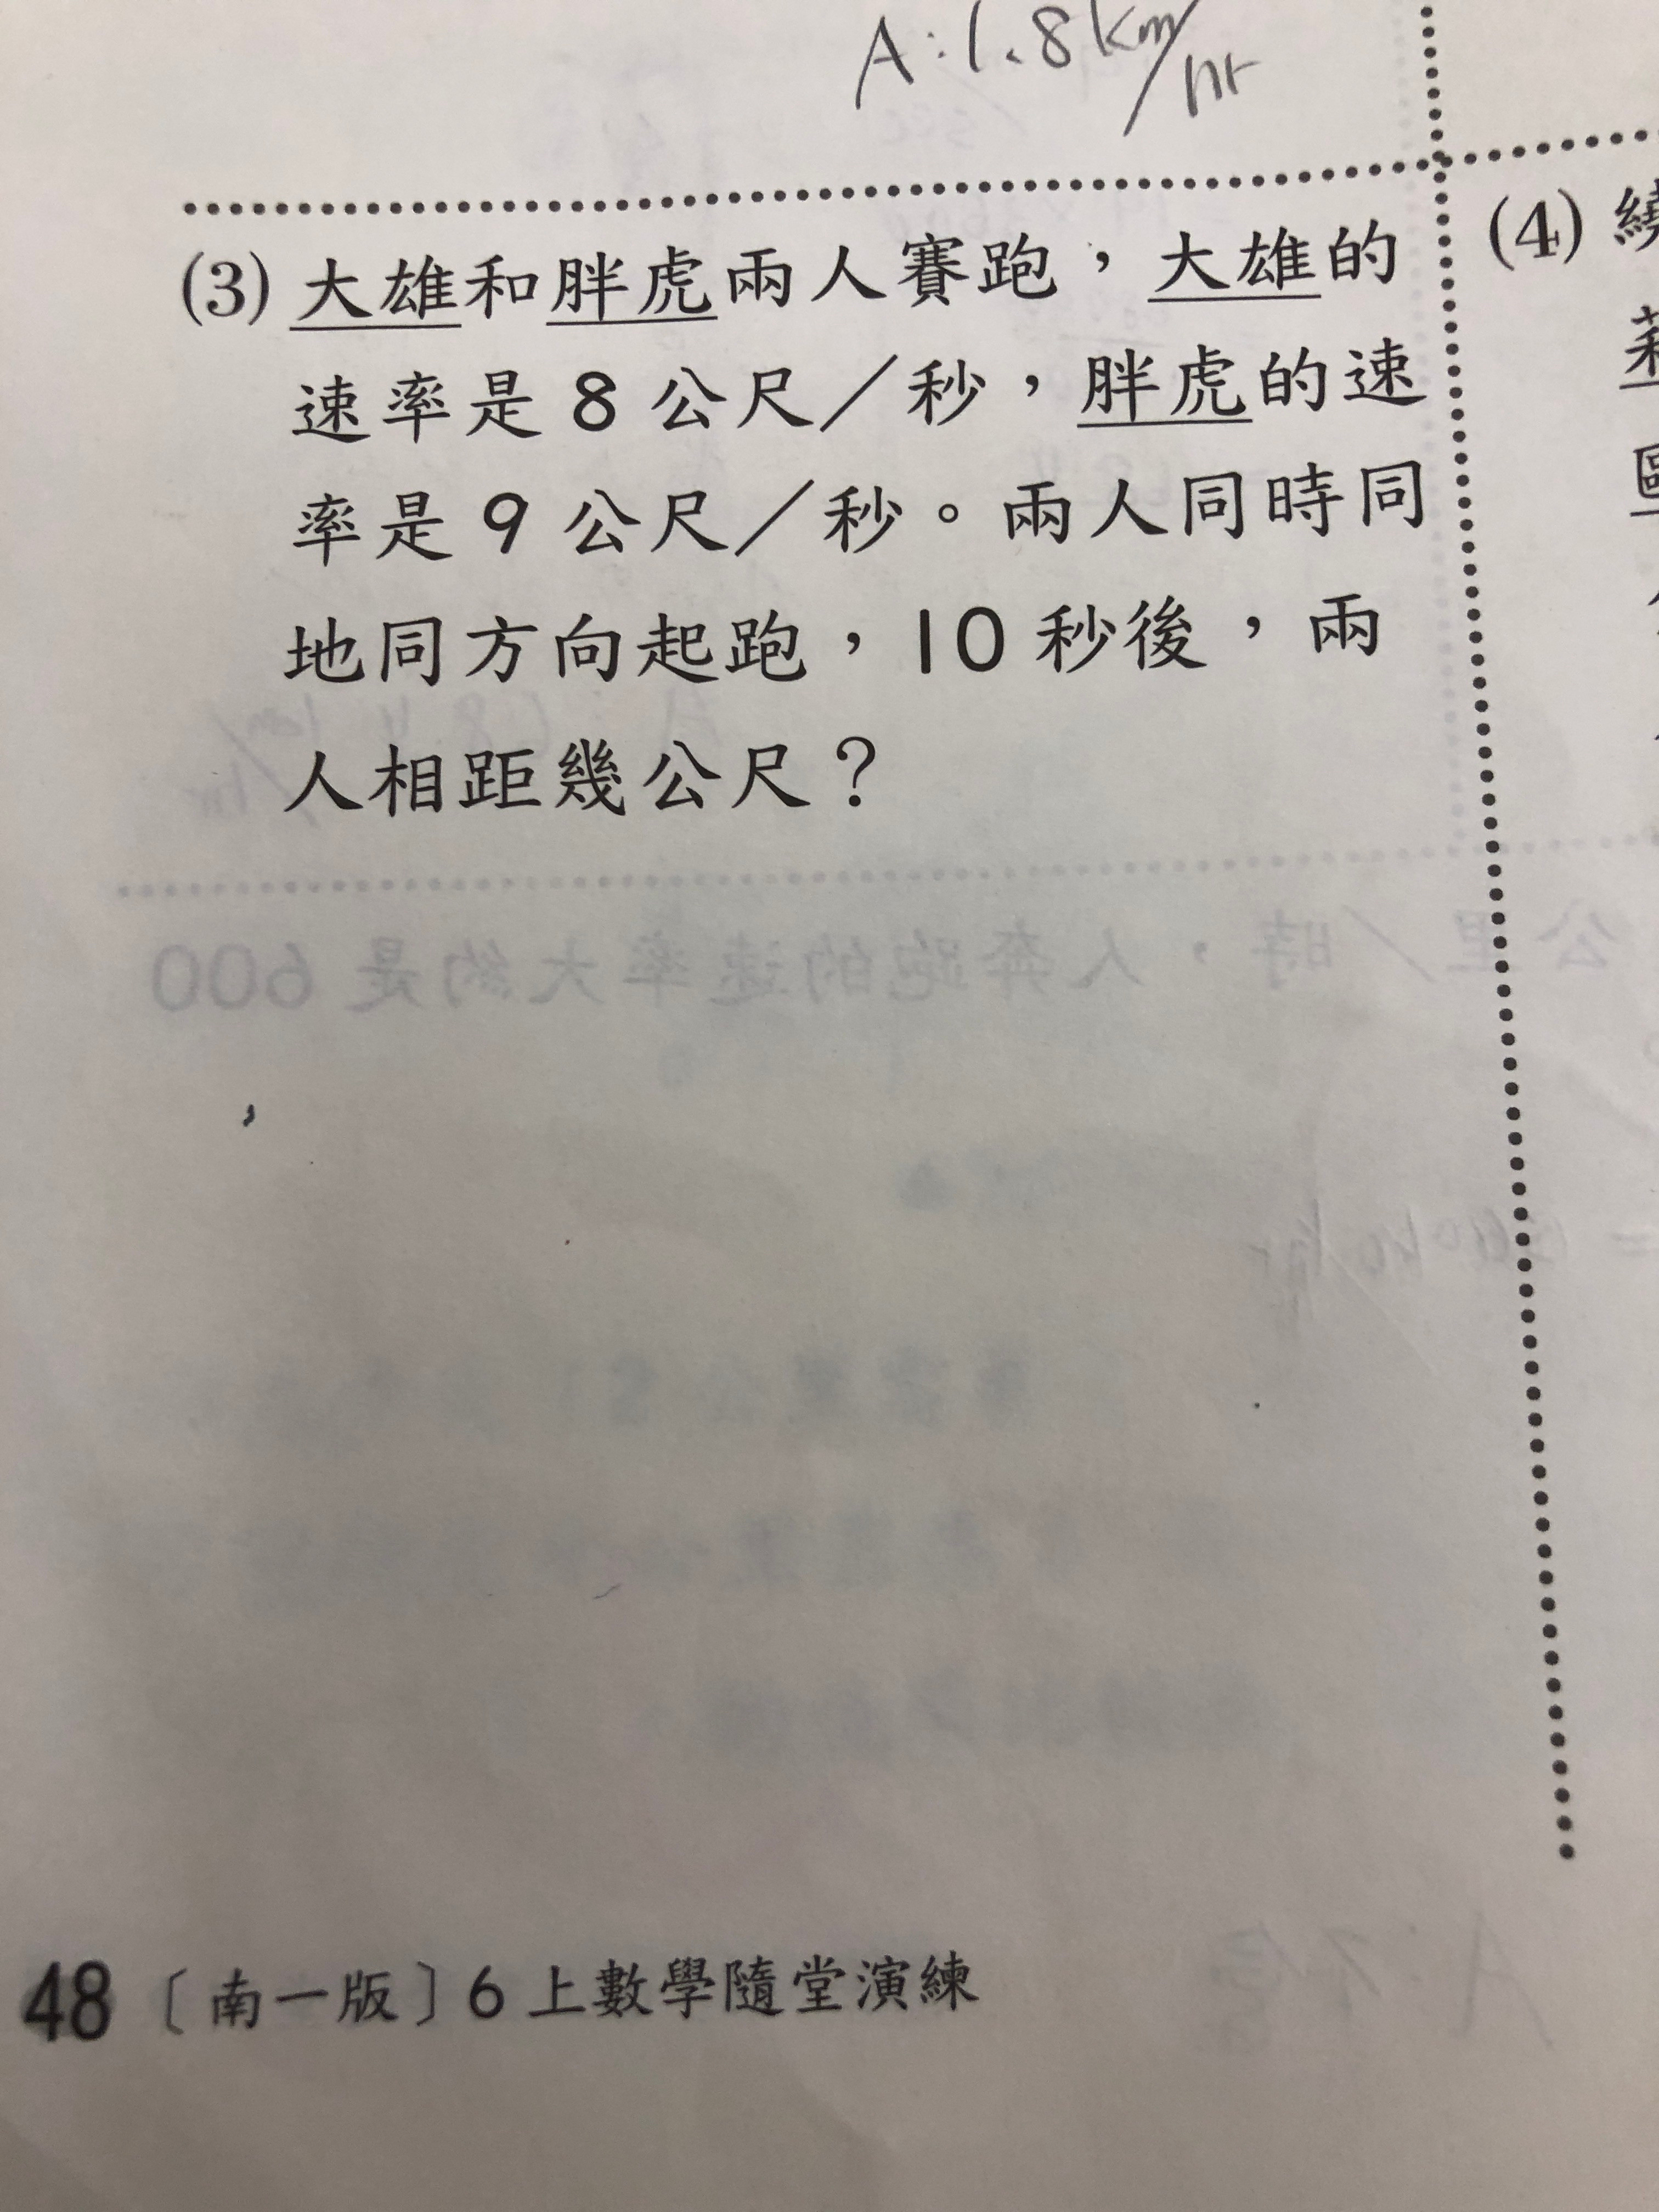 A:1.8km/hr
(3) 大雄和胖虎兩人賽跑，大雄的
速率是 8 公尺／秒，胖虎的速
率是 9 公尺／秒。兩人同時同
地同方向起跑，10 秒後，兩
人相距幾公尺？
(4) 繞
公里／時，人奔跑的速率大約是 600
48〔南一版〕6 上數學隨堂演練